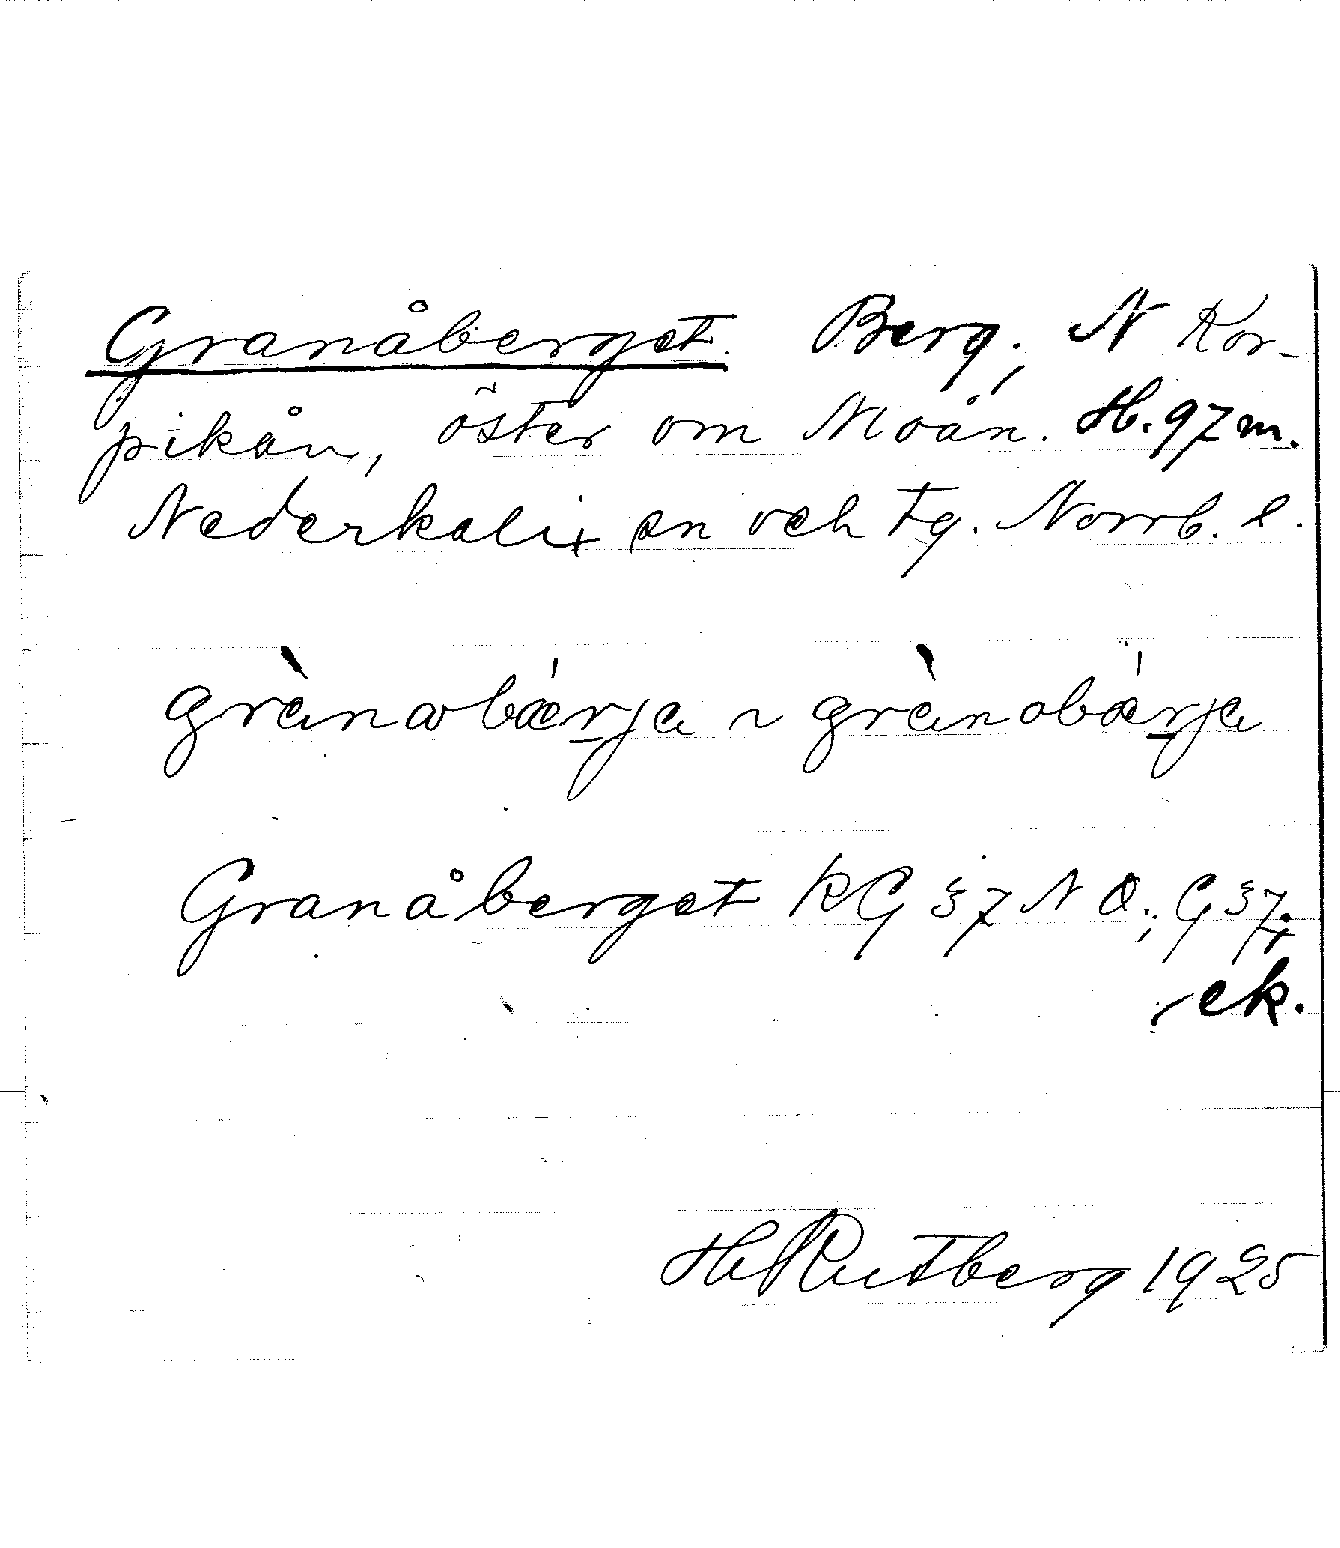 Granåberget. Berg, N Kor-
pikån, öster om Moån. H. 97 m.
Nederkalix sn och tg. Norrb. l.
grànabæ̀rja ~ grànobæ̀rja
Granåberget KG 37 N O.; G 37;
ek.
H Rutberg 1925